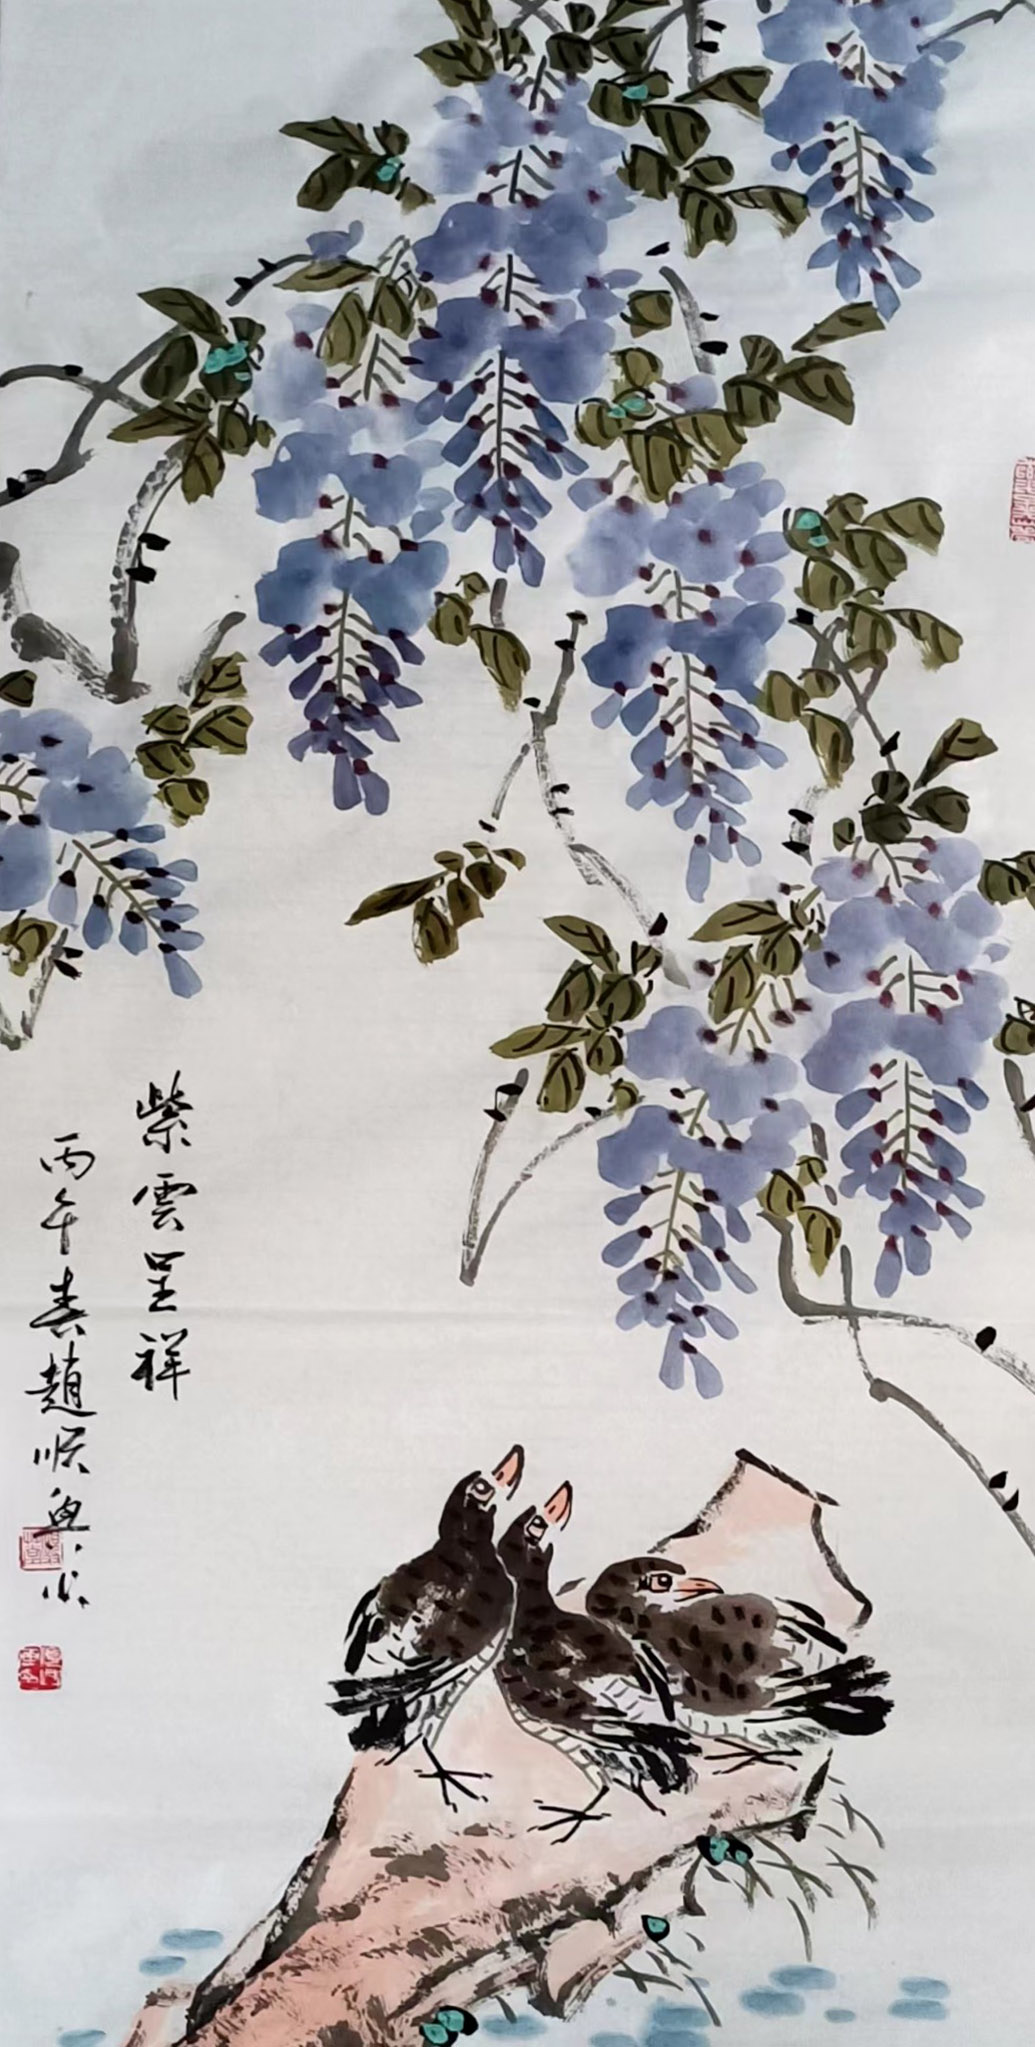 紫雲呈祥
丙午春趙順魚作